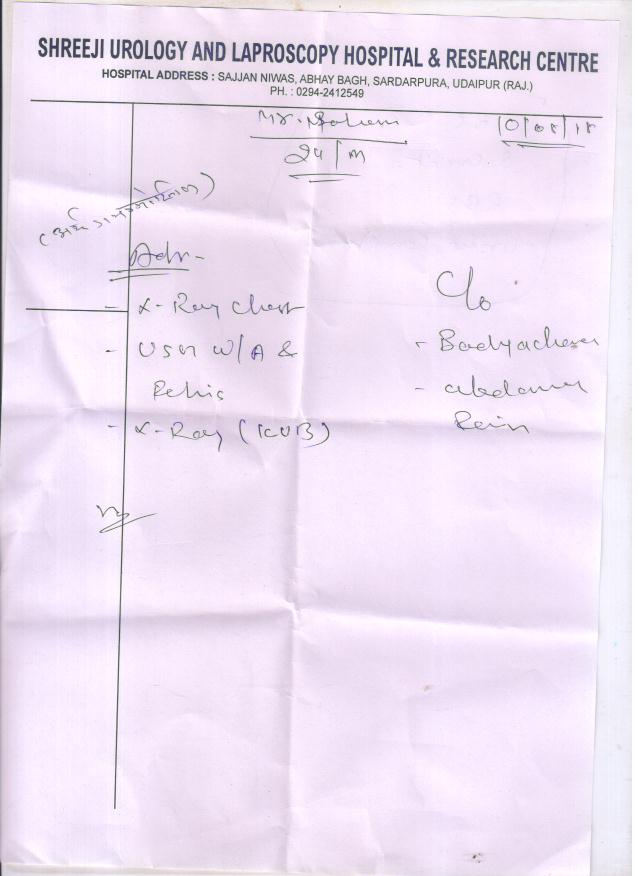 SHREEJI UROLOGY AND LAPROSCOPY HOSPITAL & RESEARCH CENTRE
HOSPITAL ADDRESS : SAJJAN NIWAS, ABHAY BAGH, SARDARPURA, UDAIPUR (RAJ.)
PH. : 0294-2412549
Mr.
10/08/18
24/M
Adv-
C/o
- X-Ray Chest
- Bodyaches
- USG W/A &
Pelvis
- abdomen
Pain
- X-Ray (KUB)